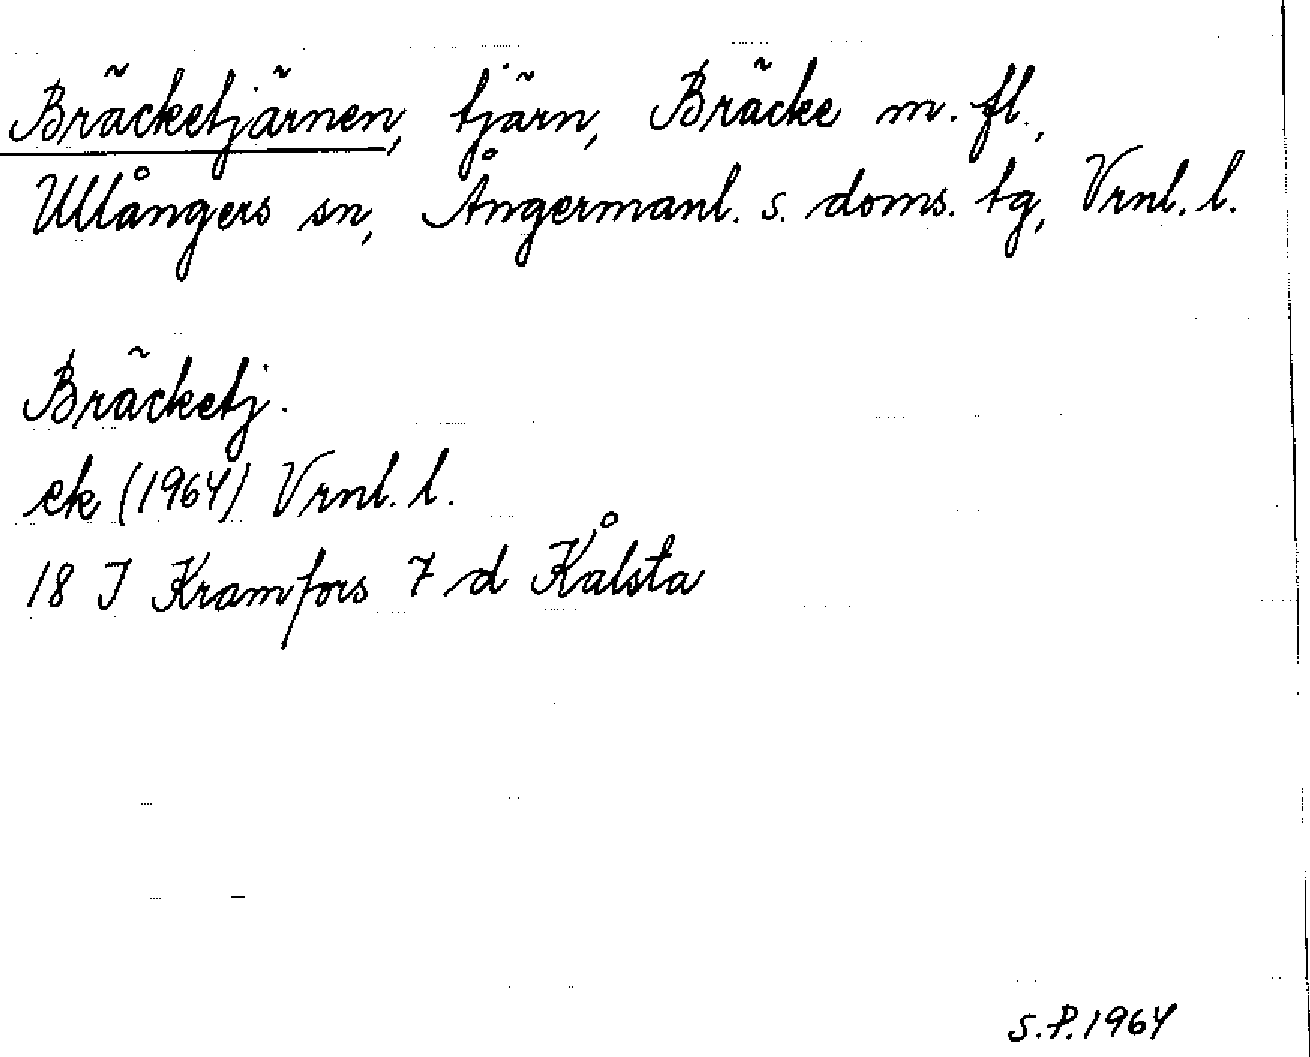 Bräcketjärnen, tjärn, Bräcke m. fl.,
Ullångers sn, Ångermanl. s. doms. tg, Vrnl. l.
Bräcketj.
ek (1964) Vrnl. l.
18 J Kramfors 7 d Kålsta
S.P. 1964